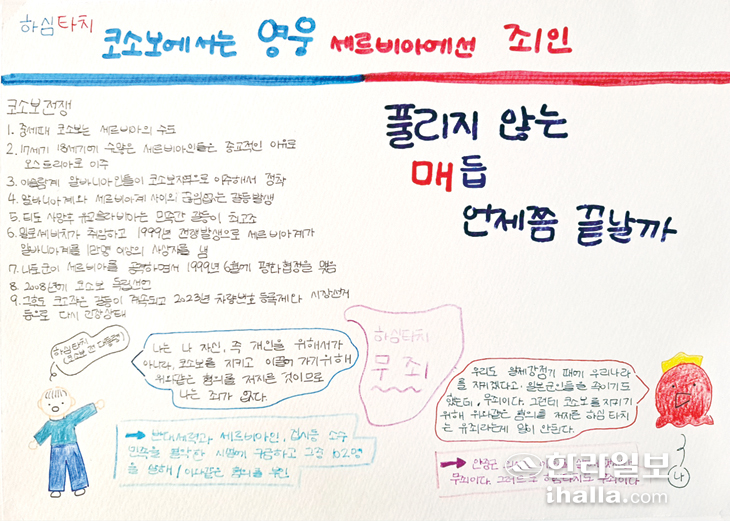 하심타치
코소보에서는 영웅 세르비아에선 죄인
코소보전쟁
1. 중세때 코소보는 세르비아의 수도
2. 17세기 18세기에 수많은 세르비아인들은 종교적인 이유로
오스트리아로 이주
3. 이슬람계 알바니아인들이 코소보지역으로 이주해서 정착
4. 알바니아계와 세르비아계 사이의 끊임없는 갈등발생
5. 티토 사망후 유고슬라비아는 민족간 갈등이 최고조
6. 밀로셰비치가 취임하고 1999년 전쟁발생으로 세르비아계가
알바니아계를 1만명 이상의 사상자를 냄
7. 나토군이 세르비아를 공격하면서 1999년 6월에 평화협정을 맺음
8. 2008년에 코소보 독립선언
9. 그후도 갈등이 계속되고 2023년 차량번호 등록제와 시장선거
등으로 다시 긴장상태
풀리지 않는
매듭
언제쯤 끝날까
하심타치
(코소보 전 대통령)
나는 나 자신, 즉 개인을 위해서가
아니라, 코소보를 지키고 이끌어 가기위해
위와같은 혐의를 저지른 것이므로
나는 죄가 없다.
반대세력과 세르비아인, 집시등 소수
민족을 시설에 구금하고 그중 102명
을 살해/이와같은 혐의를 부인
하심타치
무죄
우리도 일제강점기 때에 우리나라
를 지키겠다고 일본군인들을 죽이기도
했는데, 무죄이다. 그런데 코소보를 지키기
위해 위와같은 혐의를 저지른 하심 타치
는 유죄라는게 말이 안된다.
나
무죄이다. 그러므로 하심타치도 무죄이다
한라일보
ihalla.com